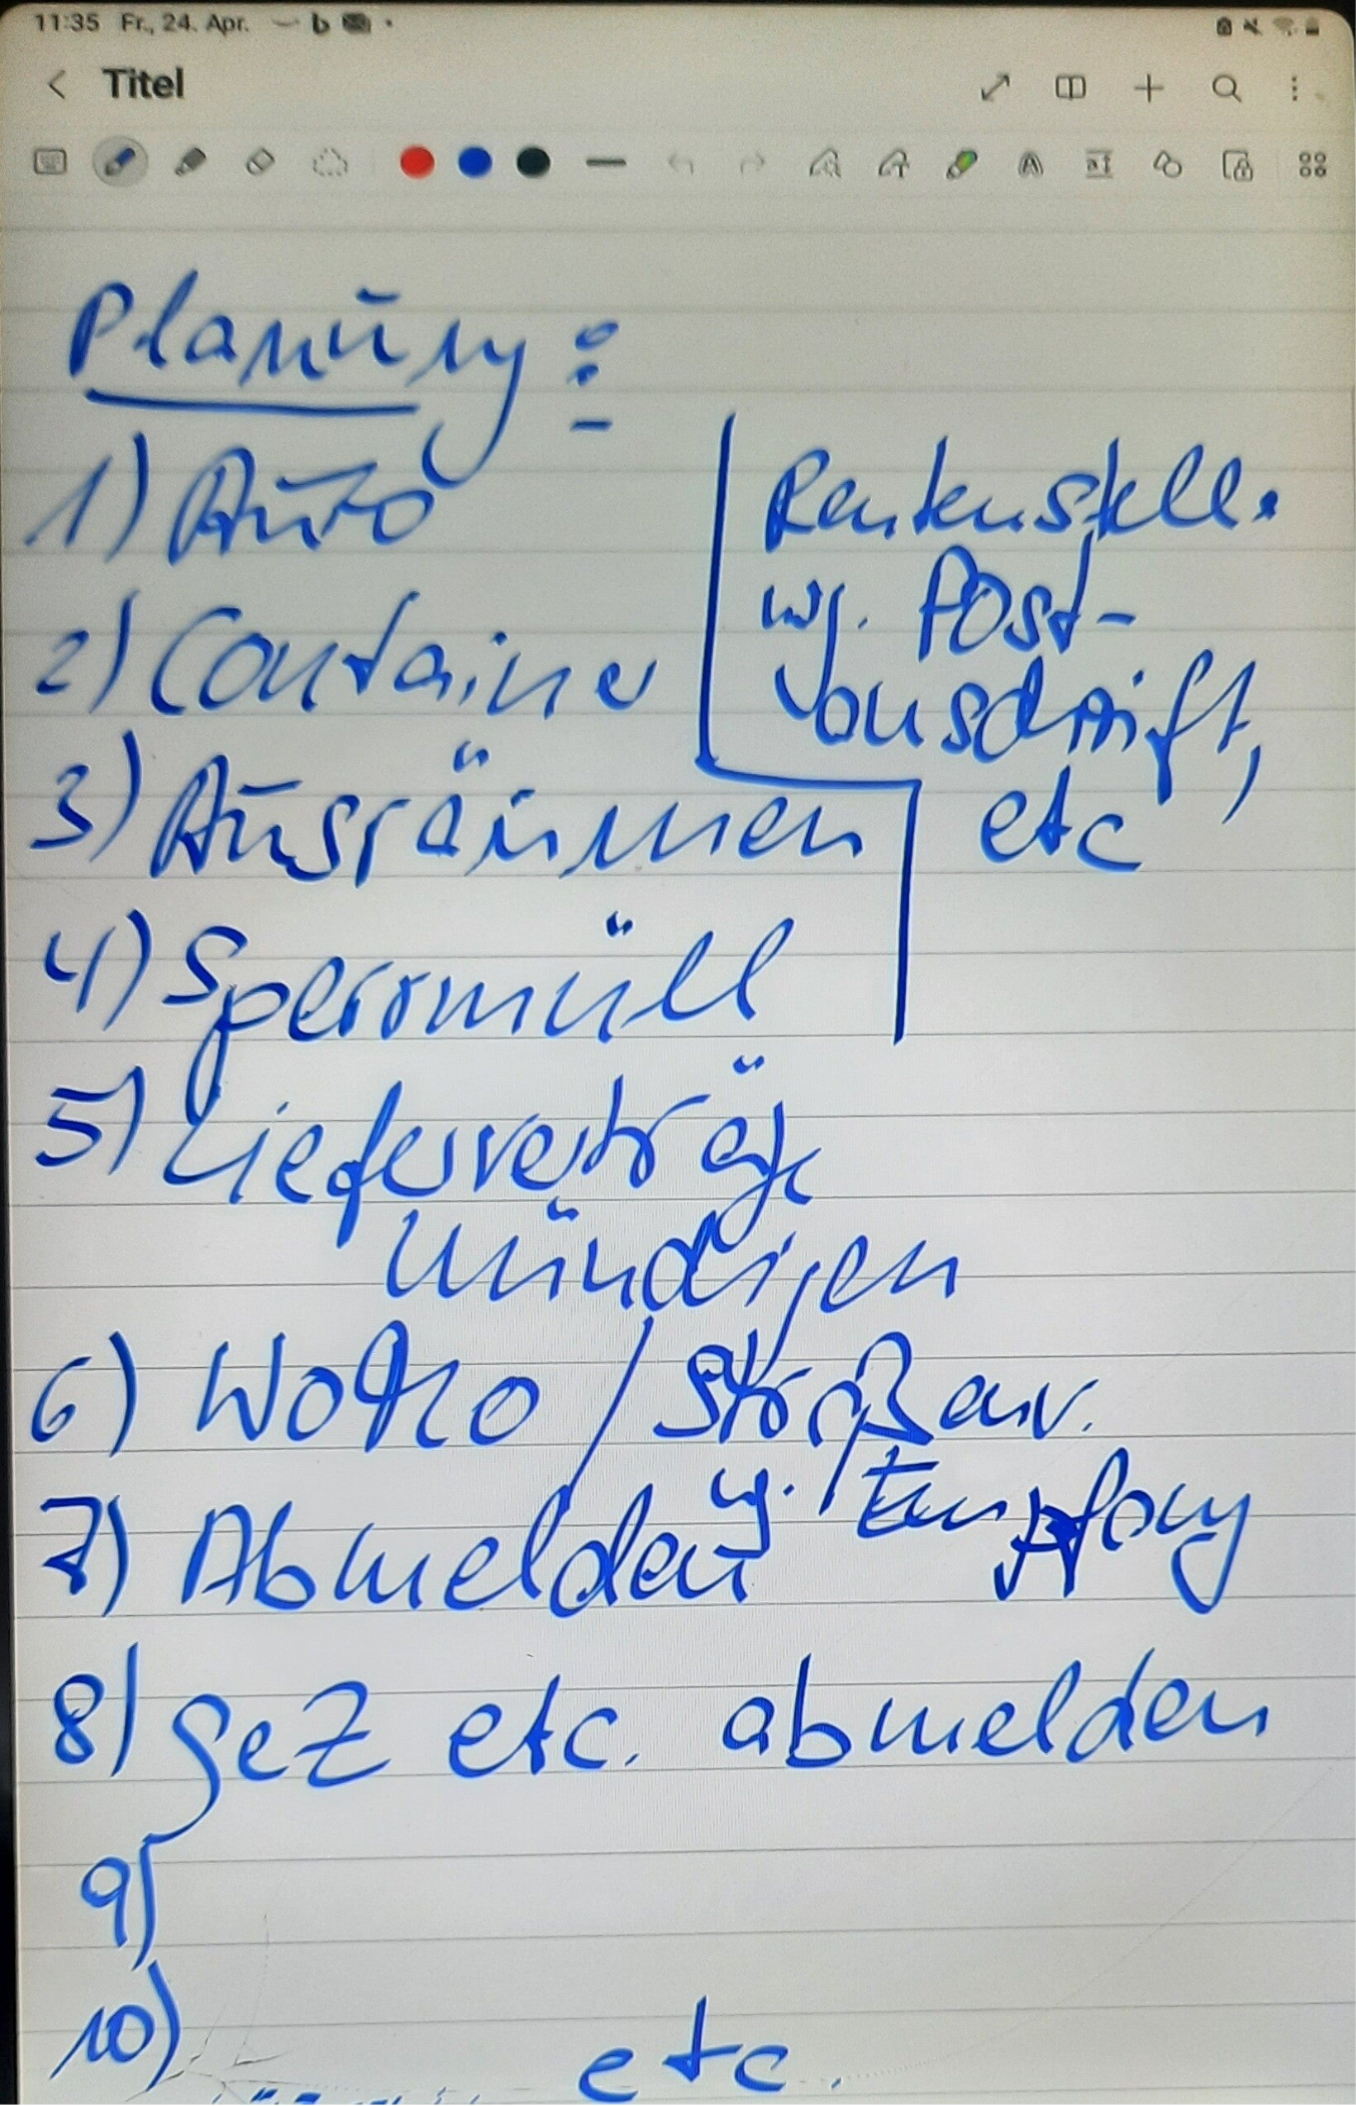 11:35 Fr., 24. Apr.
Titel
Planung:
1) Auto
2) Container
3) Ausräumen
4) Sperrmüll
5) Lieferverträge
kündigen
6) WoKo / Stroßav.
7) Abmelden wg. Empfang
8) GeZ etc. abmelden
9)
10)
etc.
Rentenstelle
wg. Post-
Vorschrift,
etc